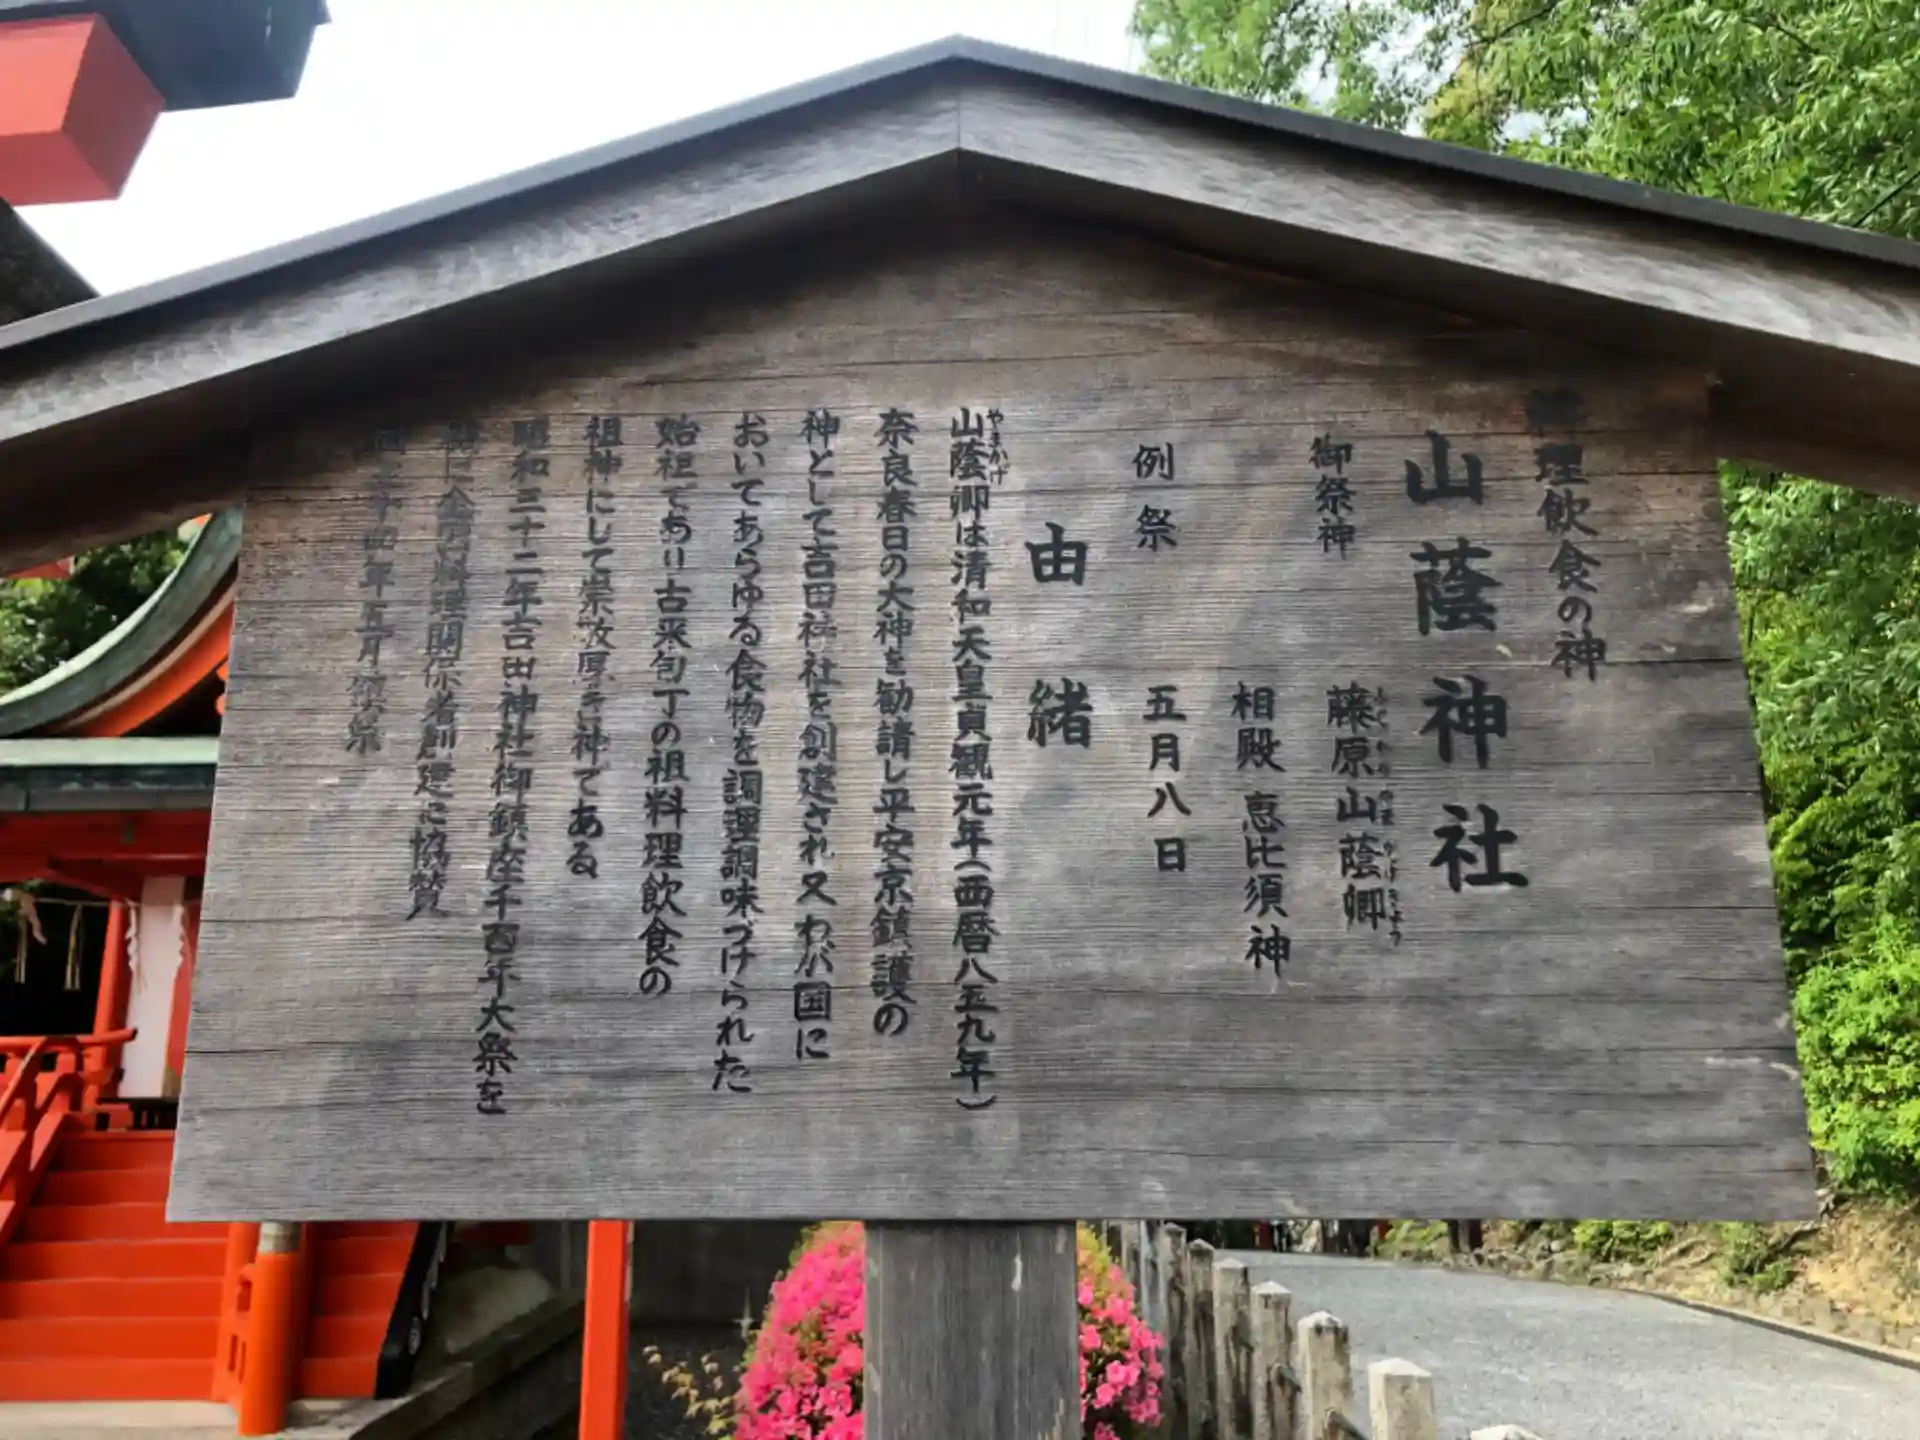 料理飲食の神
山蔭神社
御祭神 藤原山蔭卿
ふじわらやまかげきょう
相殿 恵比須神
例祭 五月八日
由緒
山蔭卿は清和天皇貞観元年(西暦八五九年)
やまかげ
奈良春日の大神を勧請し平安京鎮護の
神として吉田神社を創建され又わが国に
おいてあらゆる食物を調理調味づけられた
始祖であり古来包丁の祖料理飲食の
祖神にして崇敬厚き神である
昭和三十二年吉田神社御鎮座千百年大祭を
に全国料理関係者創建に協賛
同三十四年五月鎮祭